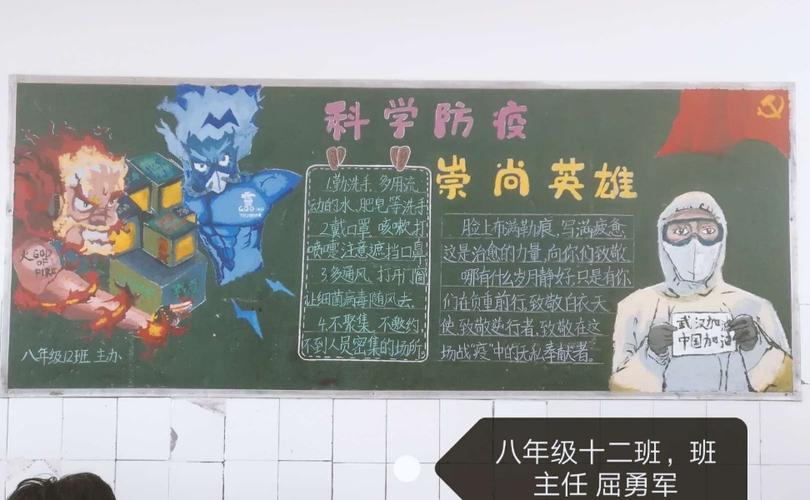 科学防疫
崇尚英雄
1.勤洗手、多用流
动的水、肥皂等洗手
2.戴口罩、咳嗽、打
喷嚏注意遮挡口鼻
3.多通风、打开门窗
让细菌病毒随风去
4.不聚集、不邀约,
不到人员密集的场所.
脸上布满勒痕,写满疲惫
这是治愈的力量,向你们致敬
哪有什么岁月静好,只是有你
们在负重前行,致敬白衣天
使,致敬逆行者,致敬在这
场战“疫”中的无私奉献者。
火GOD
OF
FIRE
武汉加油
中国加油
八年级12班 主办
八年级十二班，班
主任 屈勇军